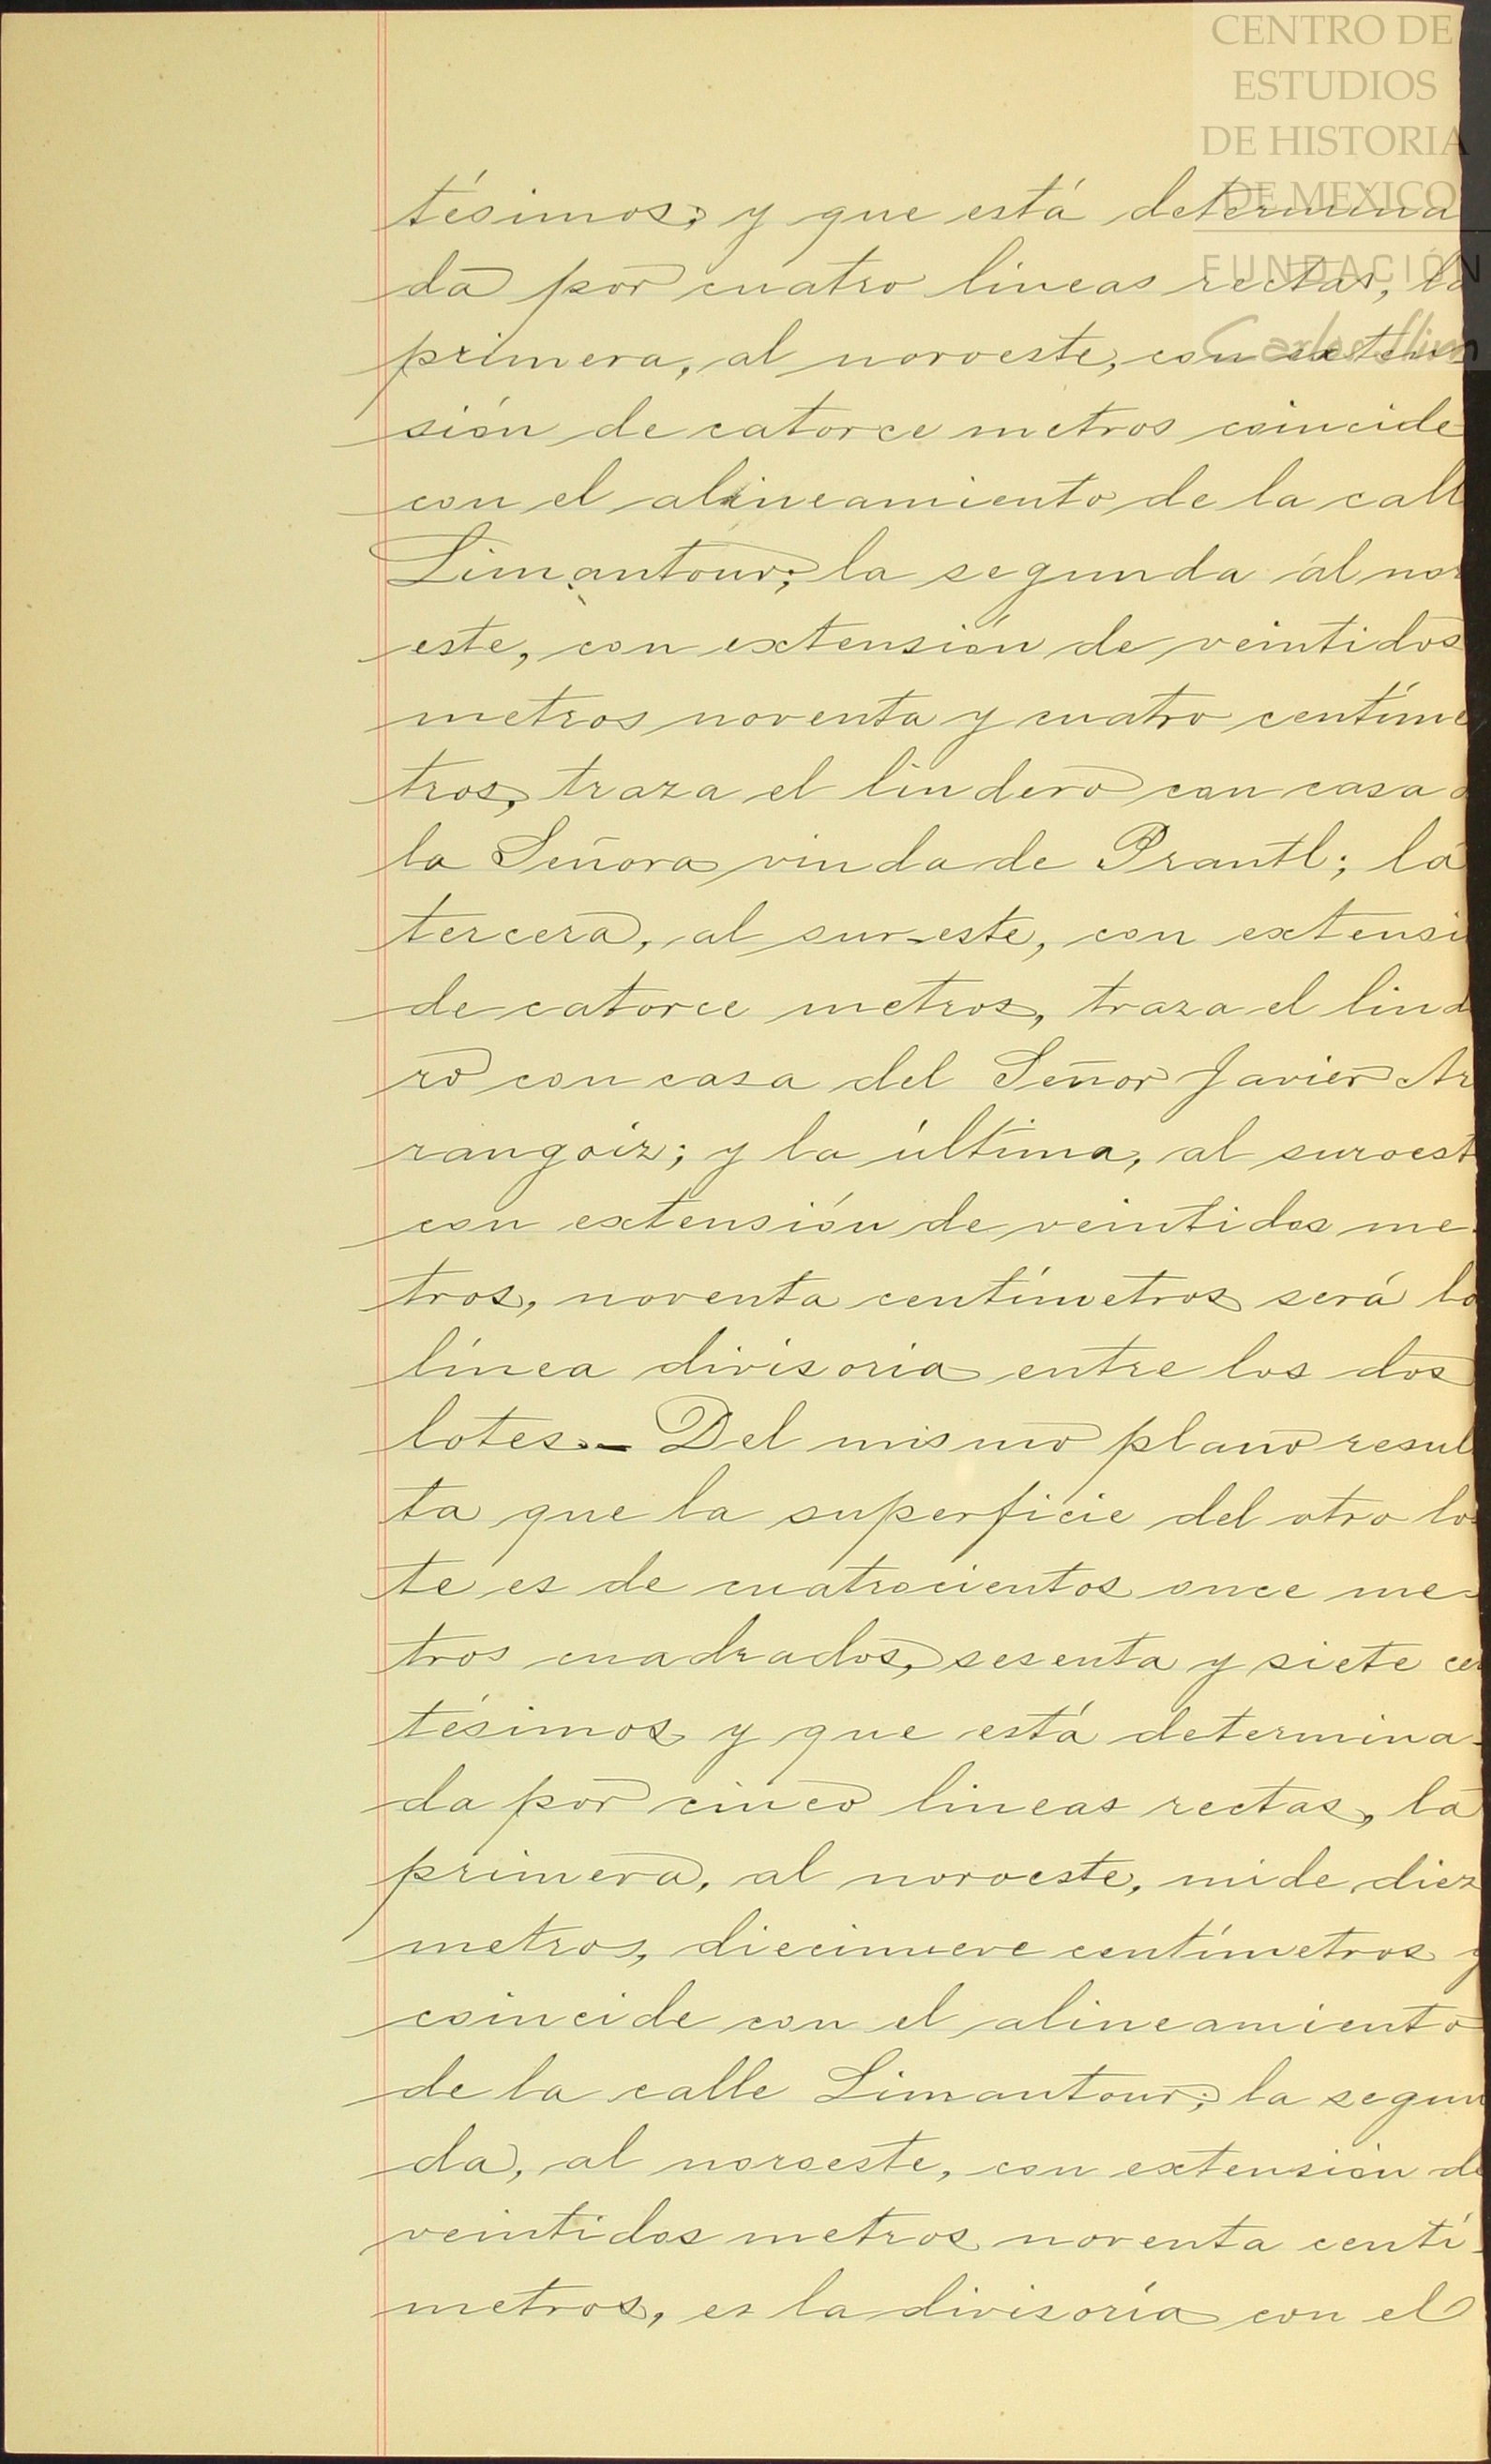 CENTRO DE
ESTUDIOS
DE HISTORIA
DE MEXICO
FUNDACIÓN
Carlos Slim
tésimos; y que está determina
da por cuatro lineas rectas, la
primera, al noroeste, con exten
sión de catorce metros coincide
con el alineamiento de la call
Limantour; la segunda al nor
este, con extensión de veintidos
metros noventa y cuatro centíme
tros, traza el lindero con casa d
la Señora viuda de Prantl; la
tercera, al sur-este, con extensi
de catorce metros, traza el lind
ro con casa del Señor Javier Ar
rangoiz; y la última, al suroest
con extensión de veintidos me-
tros, noventa centímetros será la
línea divisoria entre los dos
lotes.- Del mismo plano resul
ta que la superficie del otro lo
te es de cuatrocientos once me-
tros cuadrados, sesenta y siete cen
tésimos y que está determina-
da por cinco lineas rectas, la
primera, al noroeste, mide diez
metros, diecinueve centímetros y
coincide con el alineamiento
de la calle Limantour; la segun
da, al noroeste, con extensión de
veintidos metros noventa centí-
metros, es la divisoria con el